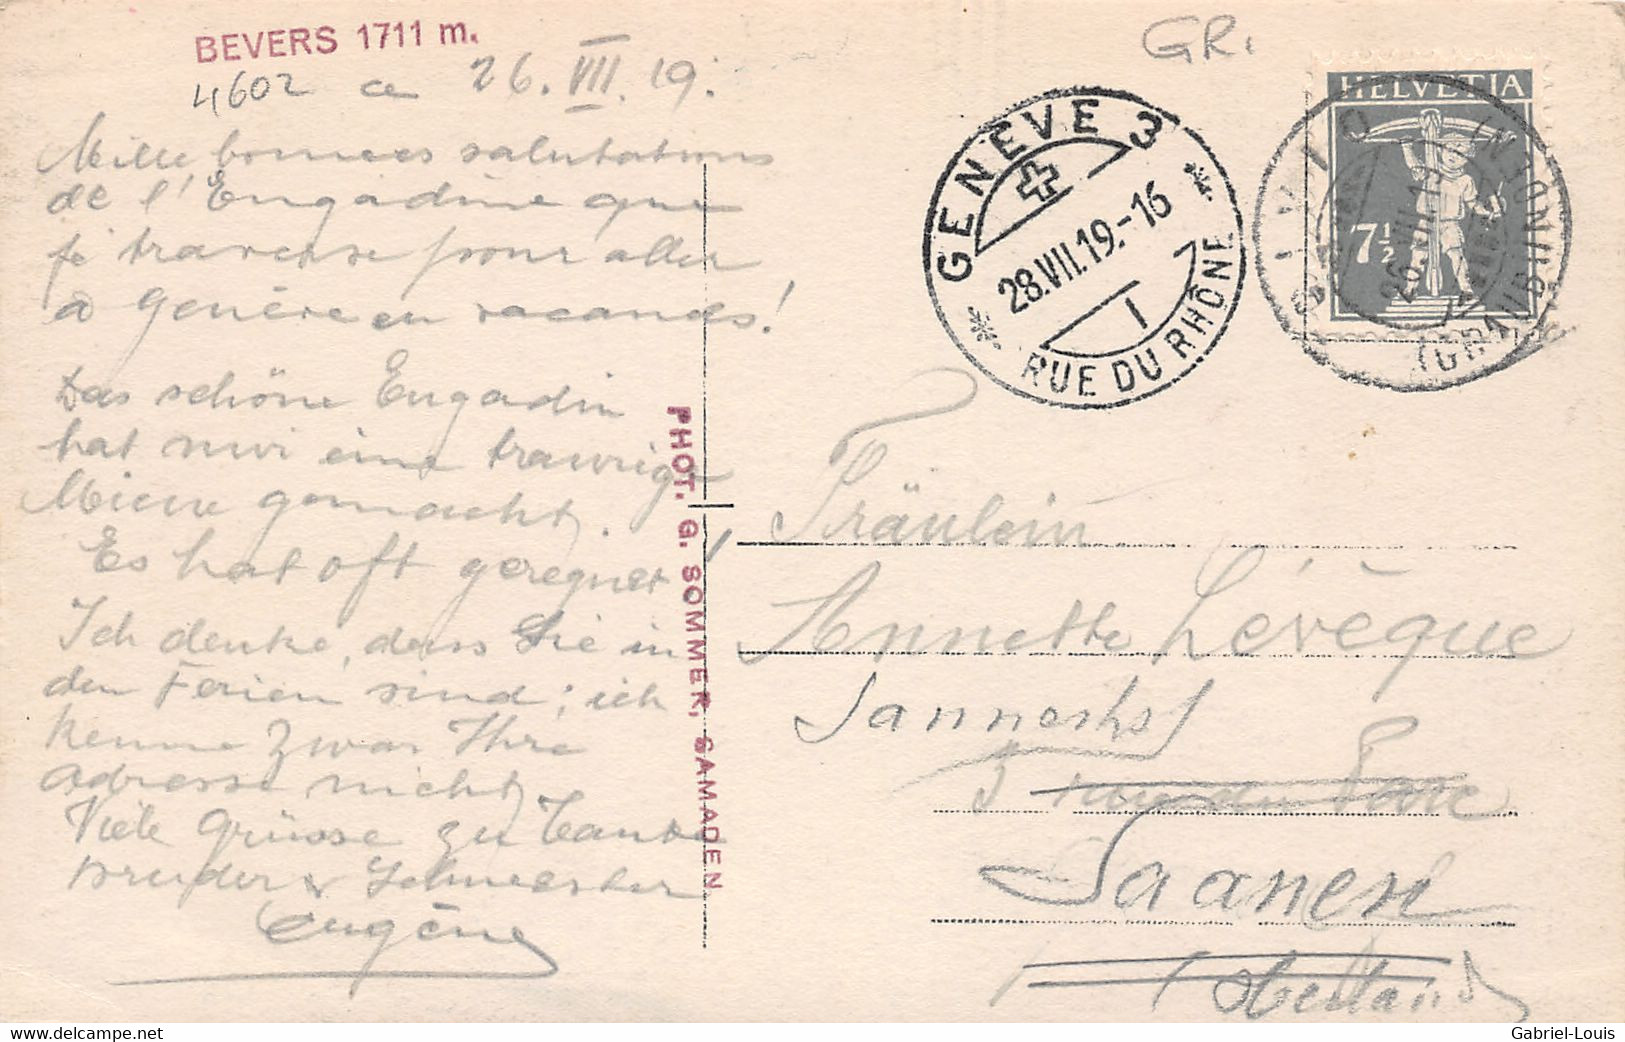 BEVERS 1711 m.
4602
26. VII. 19.
GR.
Mille bonnes salutations
de l'Engadine que
je traverse pour aller
à Genève en vacances!
Das schöne Engadin
hat mir eine traurige
Miene gemacht.
Es hat oft geregnet!
Ich denke, dass Sie in
den Ferien sind; ich
kenne zwar Ihre
Adresse nicht,
Viele Grüsse zu Tante
Bruder & Schwester
Eugène
PHOT. G. SOMMER, SAMADEN
GENÈVE 3
28.VII.19.-16
1
RUE DU RHÔNE
HELVETIA
7½
(GRAUBÜNDEN)
Fräulein
Annette Lévêque
3 rue du
Saanen
Oberland
Gabriel-Louis